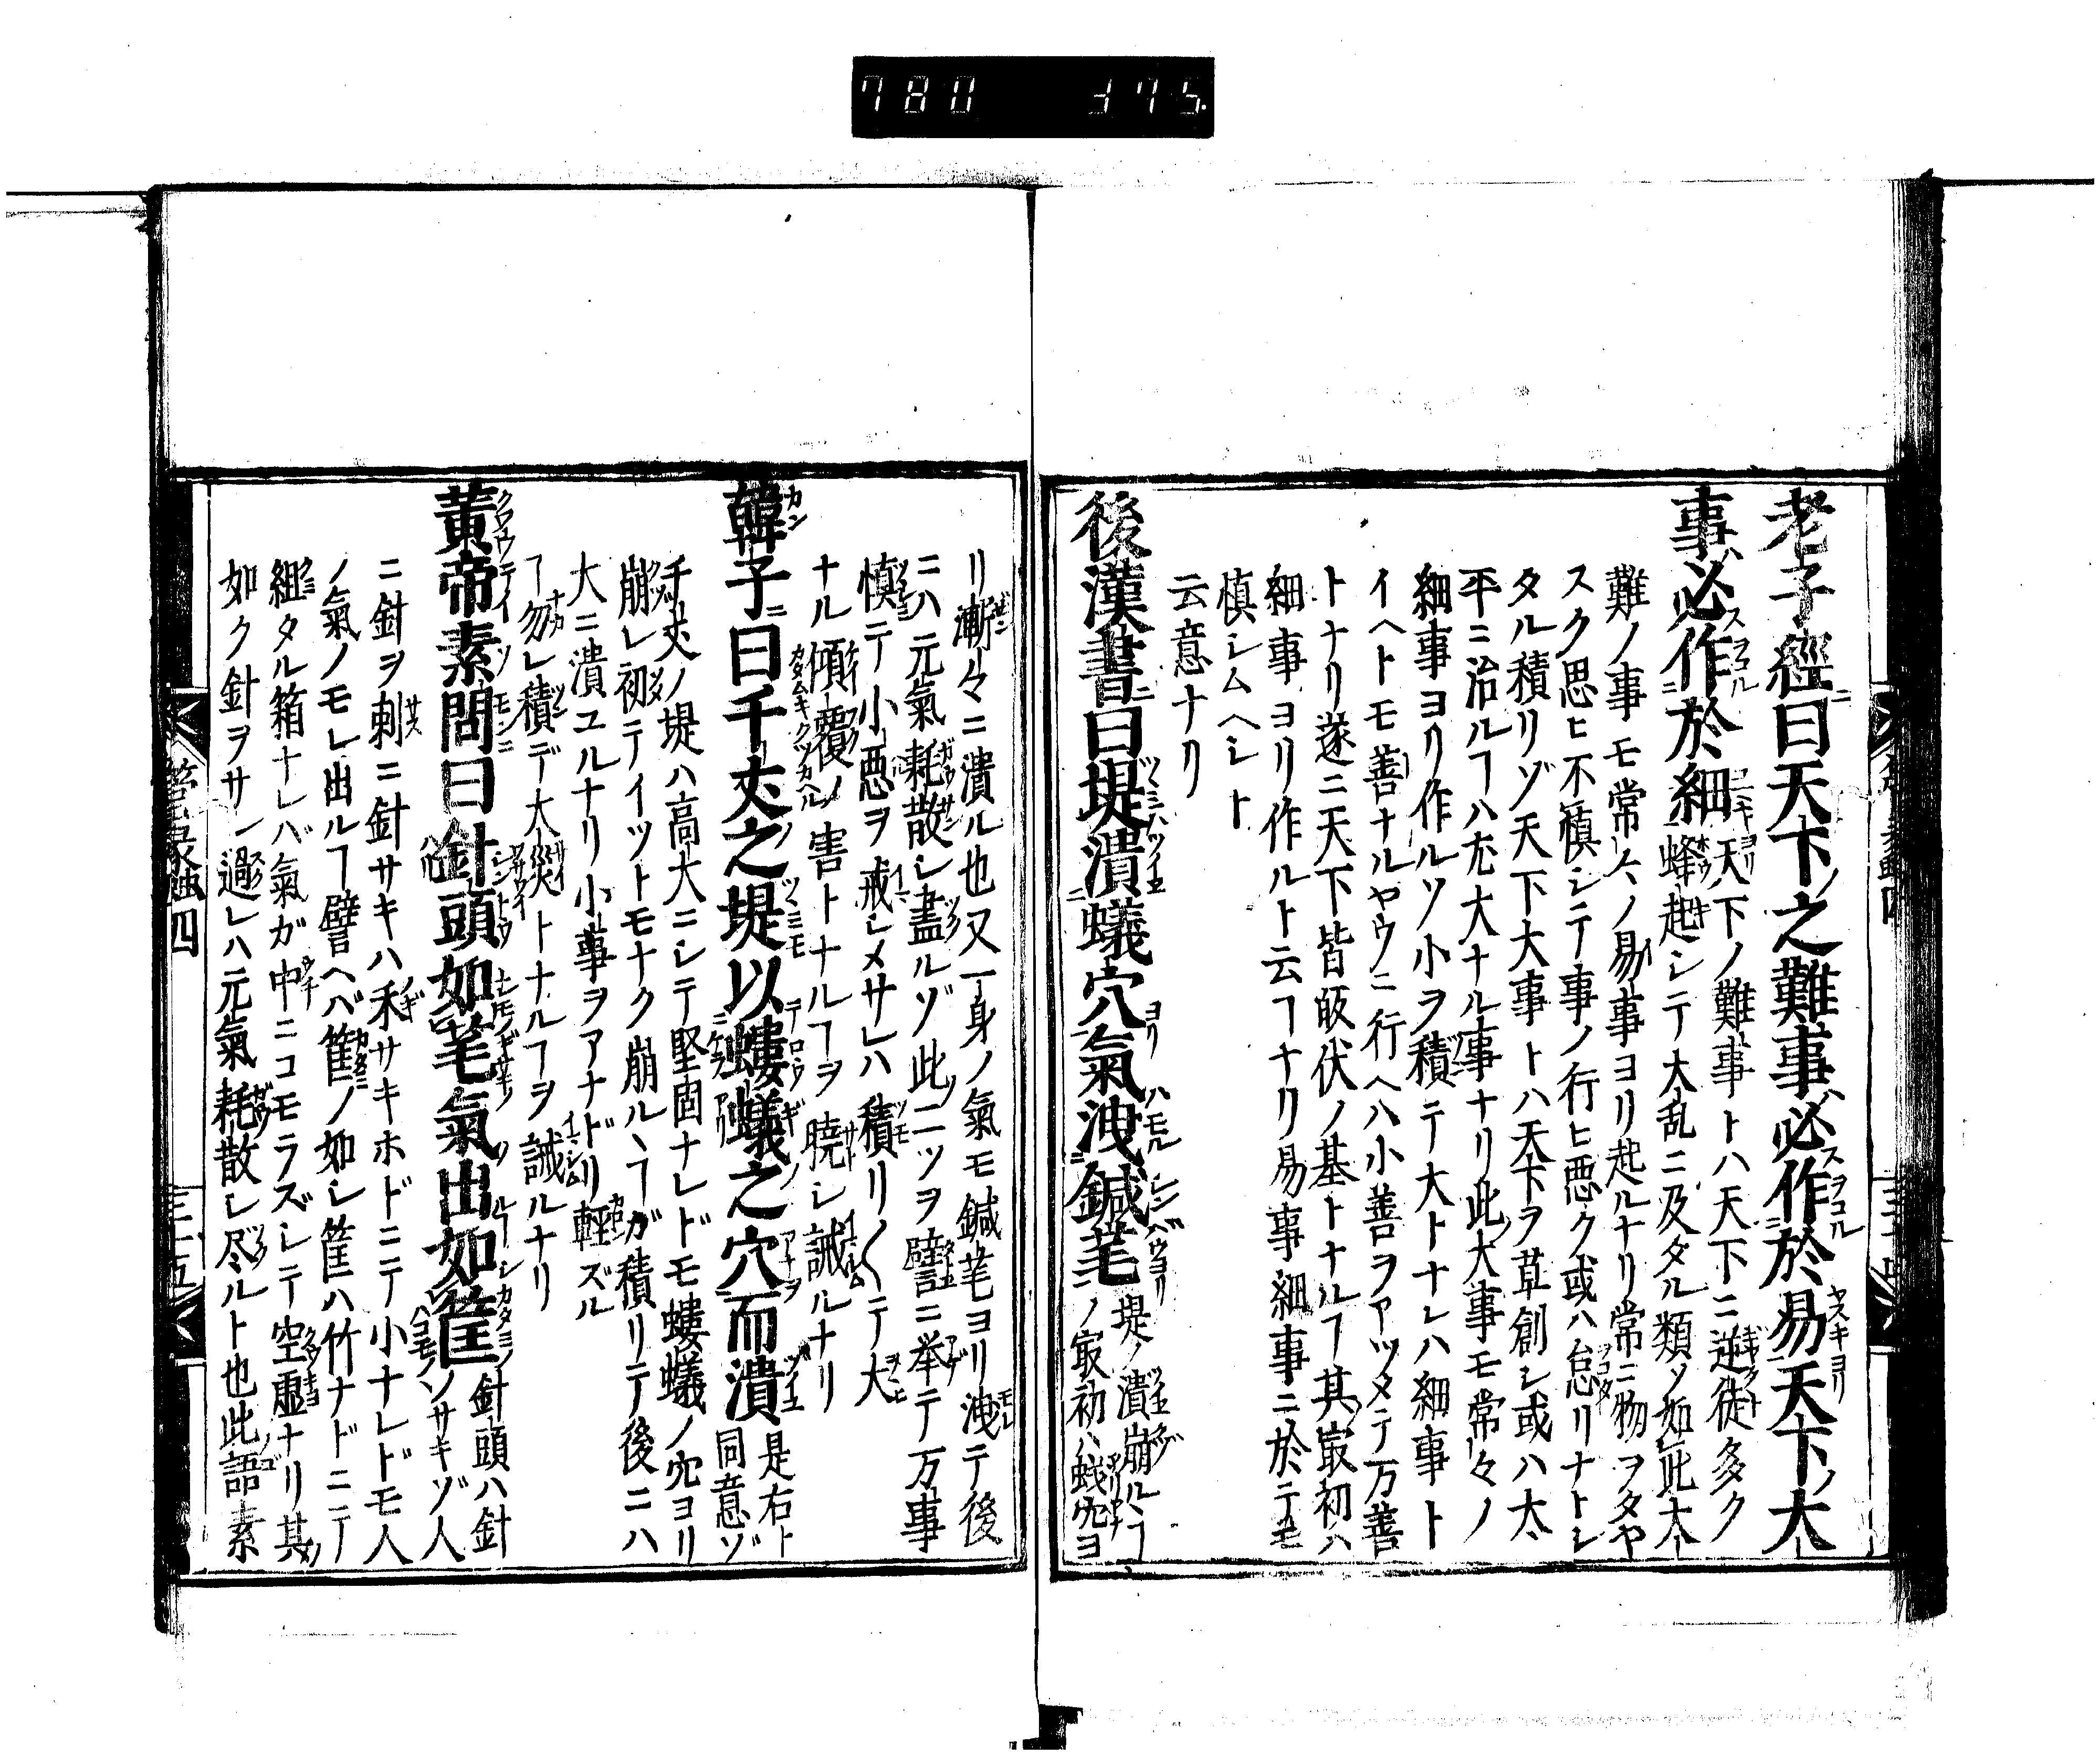 老子經ニ曰天下ノ之難事ハ必作於易天下ノ大
事ハ必作於細 天下ノ難事トハ天下ニ逆徒多ク
蜂起シテ大乱ニ及タル類ソ如此大
難ノ事モ常々ノ易事ヨリ起ルナリ常ニ物ヲタヤ
スク思ヒ不慎シテ事ノ行ヒ悪ク或ハ怠リナトシ
タル積リゾ天下大事トハ天下ヲ草創シ或ハ太
平ニ治ルヿハ尤大ナル事ナリ此大事モ常々ノ
細事ヨリ作ルソ小ヲ積テ大トナレハ細事ト
イヘトモ善ナルヤウニ行ヘハ小善ヲアツメテ万善
トナリ遂ニ天下皆皈伏ノ基トナルヿ其最初ハ
細事ヨリ作ルト云ヿナリ易事細事ニ於テモ
慎シムヘシト
云意ナリ
後漢書ニ曰堤潰蟻穴氣洩鍼芒 堤ノ潰崩ルヽヿ
ノ最初ハ蟻穴ヨ
リ漸々ニ潰ル也又一身ノ氣モ鍼芒ヨリ洩テ後
ニハ元氣耗散シ盡ルゾ此二ツヲ譬ニ挙テ万事
慎テ小悪ヲ戒シメサレハ積リ〱テ大
ナル傾覆ノ害トナルヿヲ曉シ誡ルナリ
韓子ニ曰千丈之堤以螻蟻之穴而潰 是右ト
同意ゾ
千丈ノ堤ハ高大ニシテ堅固ナレドモ螻蟻ノ穴ヨリ
崩レ初テイツトモナク崩ルヽヿガ積リテ後ニハ
大ニ潰ユルナリ小事ヲアナドリ輕ズル
ヿ勿レ積デ大災トナルヿヲ誡ルナリ
黄帝素問曰針頭如芒氣出如筐 針頭ハ針
ノサキゾ人
ニ針ヲ刺ニ針サキハ禾サキホドニテ小ナレドモ人
ノ氣ノモレ出ルヿ譬ヘバ筐ノ如シ筐ハ竹ナドニテ
組タル箱ナレバ氣ガ中ニコモラズシテ空虚ナリ其
如ク針ヲサシ過レハ元氣耗散シ尽ルト也此語素
四
三ノ五
780 375.